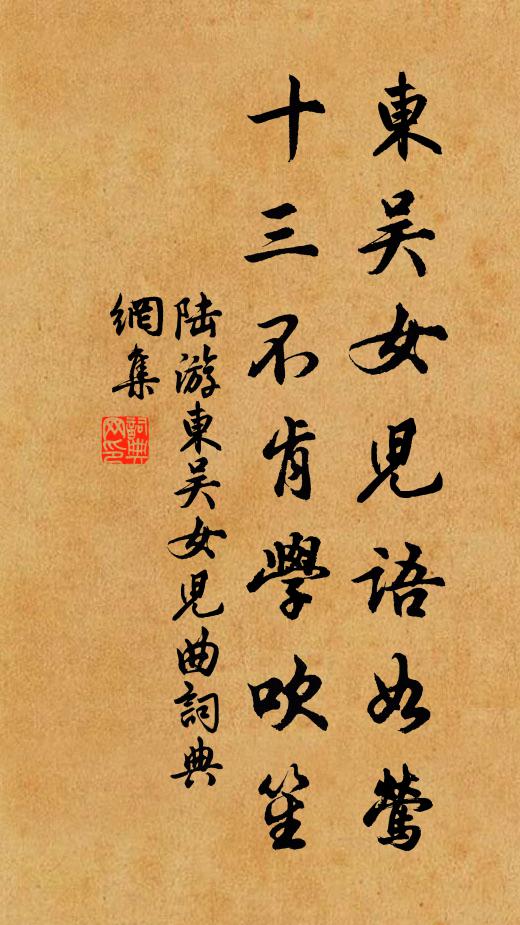 東吴女児語如鶯
十三不肯學吹笙
陆游東吴女児曲詞典
網集
詞典
网印